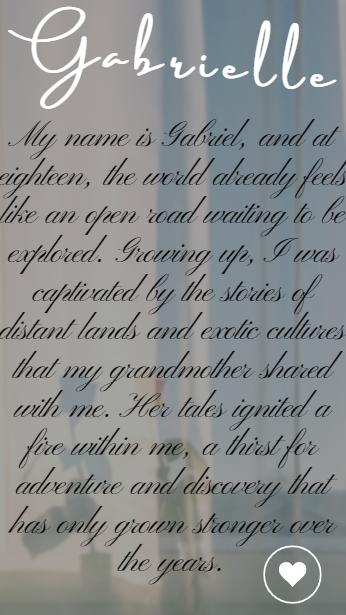 Gabrielle
My name is Gabriel, and at
eighteen, the world already feels
like an open road waiting to be
explored. Growing up, I was
captivated by the stories of
distant lands and exotic cultures
that my grandmother shared
with me. Her tales ignited a
fire within me, a thirst for
adventure and discovery that
has only grown stronger over
the years.